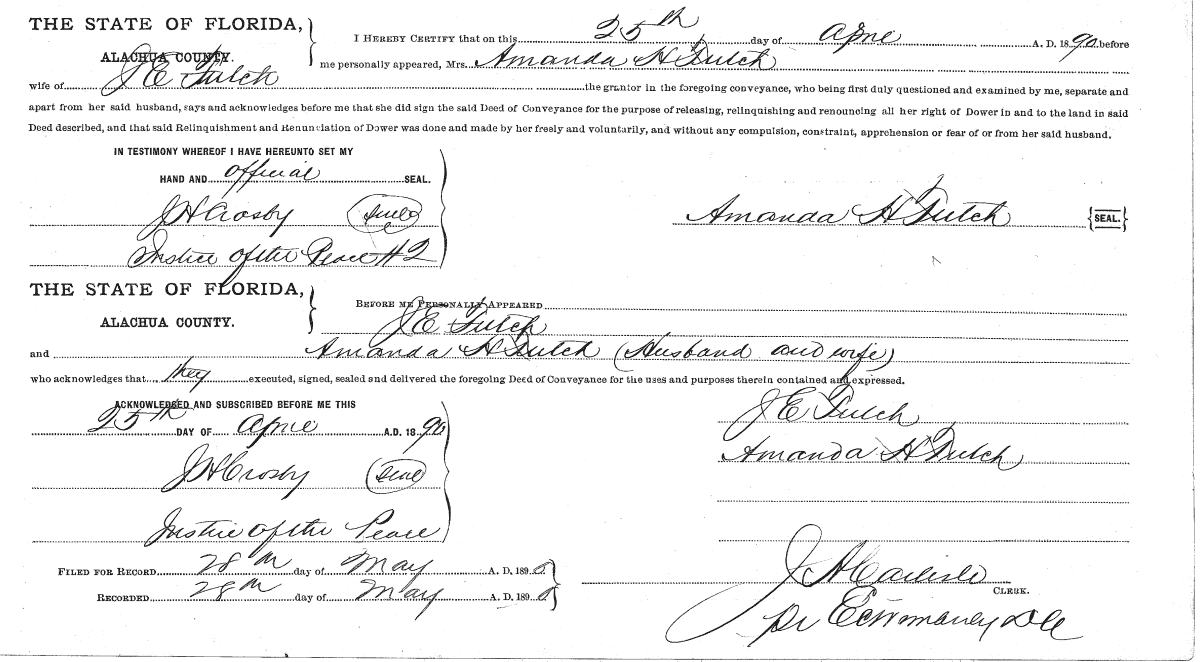 THE STATE OF FLORIDA,
ALACHUA COUNTY.
I HEREBY CERTIFY that on this 25th day of April A. D. 1890 before
me personally appeared, Mrs. Amanda H Futch
wife of J E Futch the grantor in the foregoing conveyance, who being first duly questioned and examined by me, separate and
apart from her said husband, says and acknowledges before me that she did sign the said Deed of Conveyance for the purpose of releasing, relinquishing and renouncing all her right of Dower in and to the land in said
Deed described, and that said Relinquishment and Renunciation of Dower was done and made by her freely and voluntarily, and without any compulsion, constraint, apprehension or fear of or from her said husband.
IN TESTIMONY WHEREOF I HAVE HEREUNTO SET MY
HAND AND official SEAL.
J H Crosby (seal)
Justice of the Peace #2
Amanda H Futch {SEAL.}
THE STATE OF FLORIDA,
ALACHUA COUNTY.
BEFORE ME PERSONALLY APPEARED
J E Futch
and Amanda H Futch (Husband and wife)
who acknowledges that they executed, signed, sealed and delivered the foregoing Deed of Conveyance for the uses and purposes therein contained and expressed.
ACKNOWLEDGED AND SUBSCRIBED BEFORE ME THIS
25th DAY OF April A.D. 1890
J H Crosby (seal)
Justice of the Peace
J E Futch
Amanda H Futch
FILED FOR RECORD 28th day of May A. D. 1890
RECORDED 28th day of May A. D. 1890
J A Carlisle
CLERK.
pr